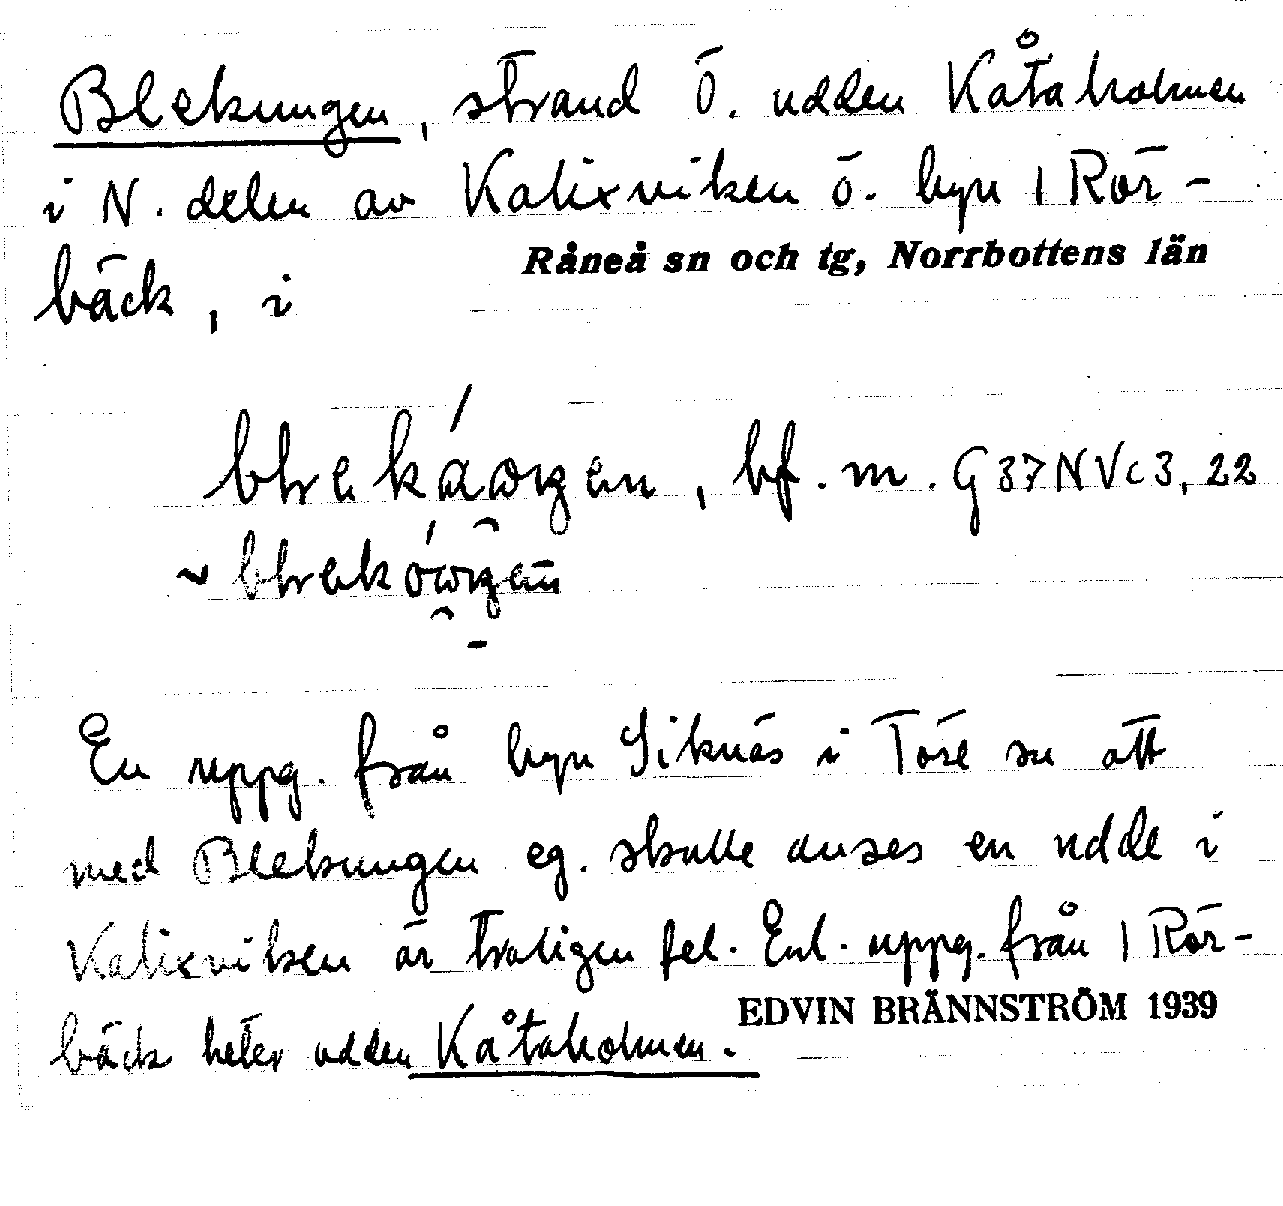 Blekungen, strand Ö. udden Kåtaholmen
i N. delen av Kalixviken ö. byn 1 Rör-
Råneå sn och tg, Norrbottens län
bäck, i
bf. m. G 37 N V c 3, 22
En uppg. från byn Siknäs i Töre sn att
med Blekungen eg. skulle anses en udde i
Kalixviken är troligen fel. Enl. uppg. från 1 Rör-
EDVIN BRÄNNSTRÖM 1939
bäck heter udden Kåtaholmen.